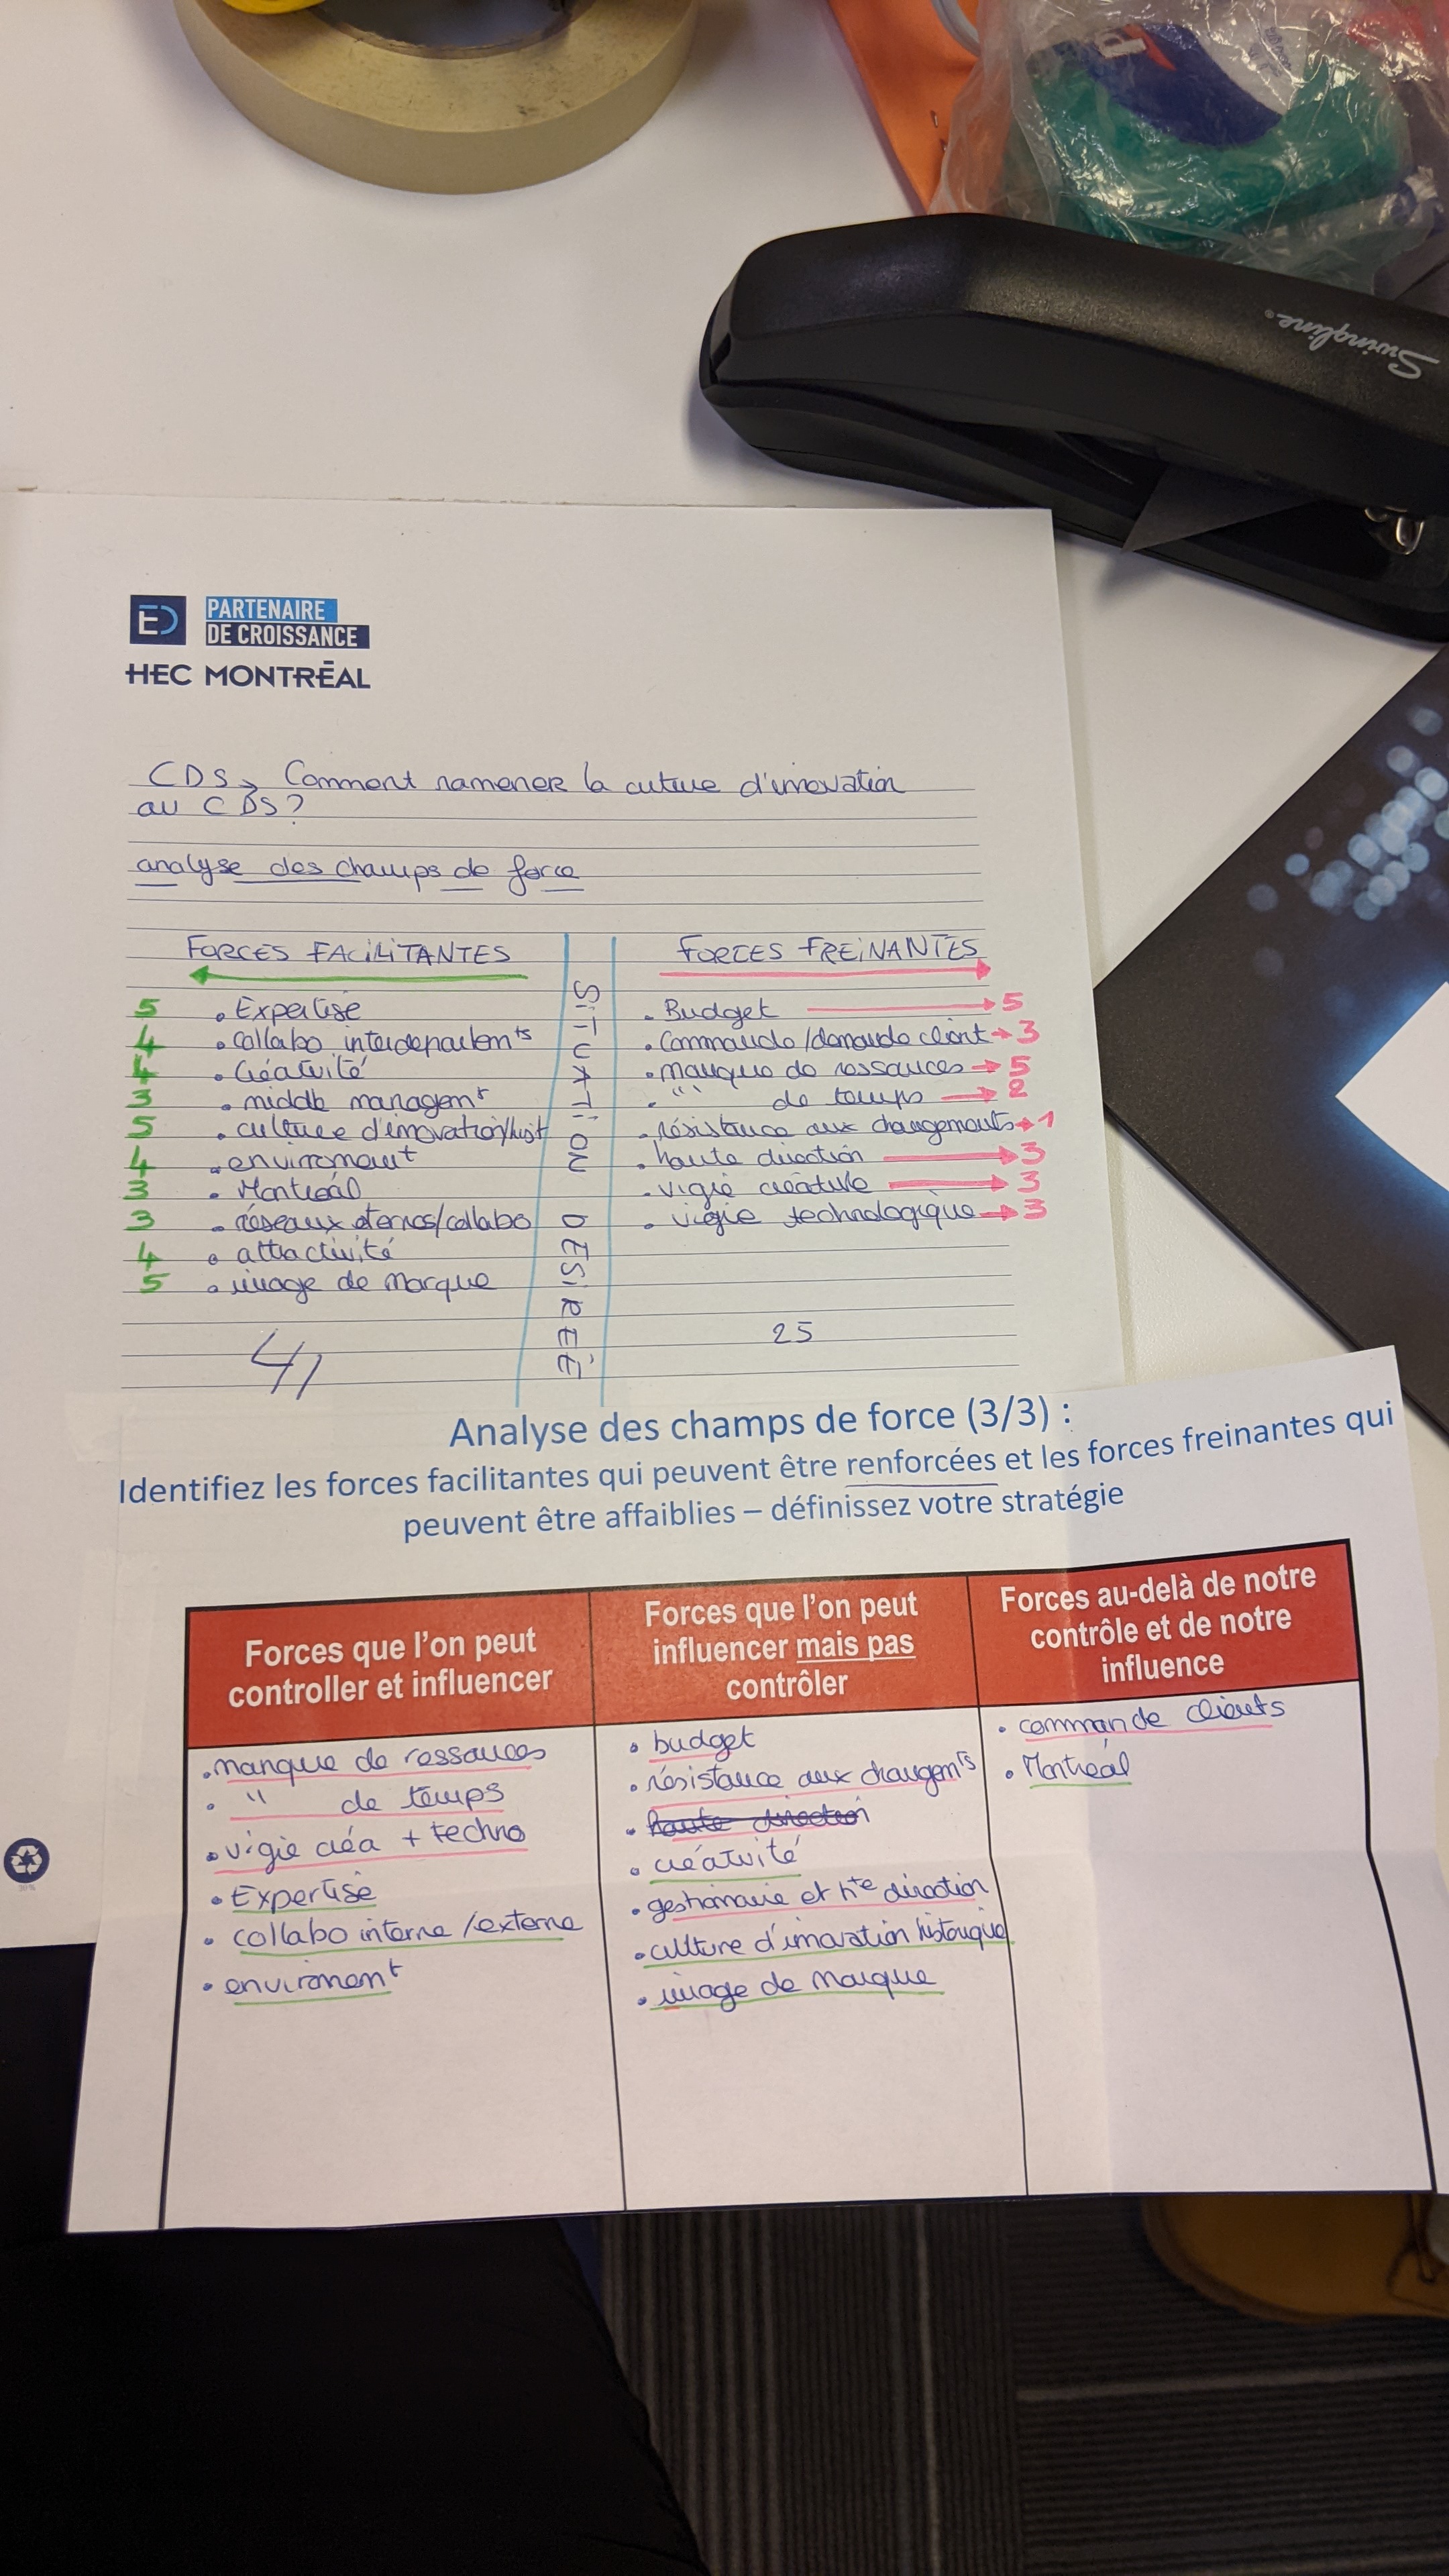 Swingline®
PARTENAIRE
DE CROISSANCE
HEC MONTRÉAL
CDS → Comment ramener la cuture d'innovation
au CDS?
analyse des champs de force
FORCES FACILITANTES
FORCES FREINANTES
SITUATION DÉSIRÉE
5 • Expertise
4 • collabo interdepartemts
4 • Créativité
3 • middle managemt
5 • culture d'innovation/hist
4 • environment
3 • Montreal
3 • réseaux externes/collabo
4 • attractivité
5 • image de marque
41
• Budget → 5
• Commande/demande client → 3
• manque de ressources → 5
• " " de temps → 2
• résistance aux changements → 1
• haute direction → 3
• vigie créative → 3
• vigie technologique → 3
25
Analyse des champs de force (3/3) :
Identifiez les forces facilitantes qui peuvent être renforcées et les forces freinantes qui
peuvent être affaiblies – définissez votre stratégie
Forces que l'on peut
controller et influencer
• manque de ressources
• " de temps
• vigie créa + techno
• Expertise
• collabo interne/externe
• environemt
Forces que l'on peut
influencer mais pas
contrôler
• budget
• résistance aux changemts
• haute direction
• créativité
• gestionnaire et hte direction
• culture d'innovation historique
• image de marque
Forces au-delà de notre
contrôle et de notre
influence
• commande clients
• Montreal